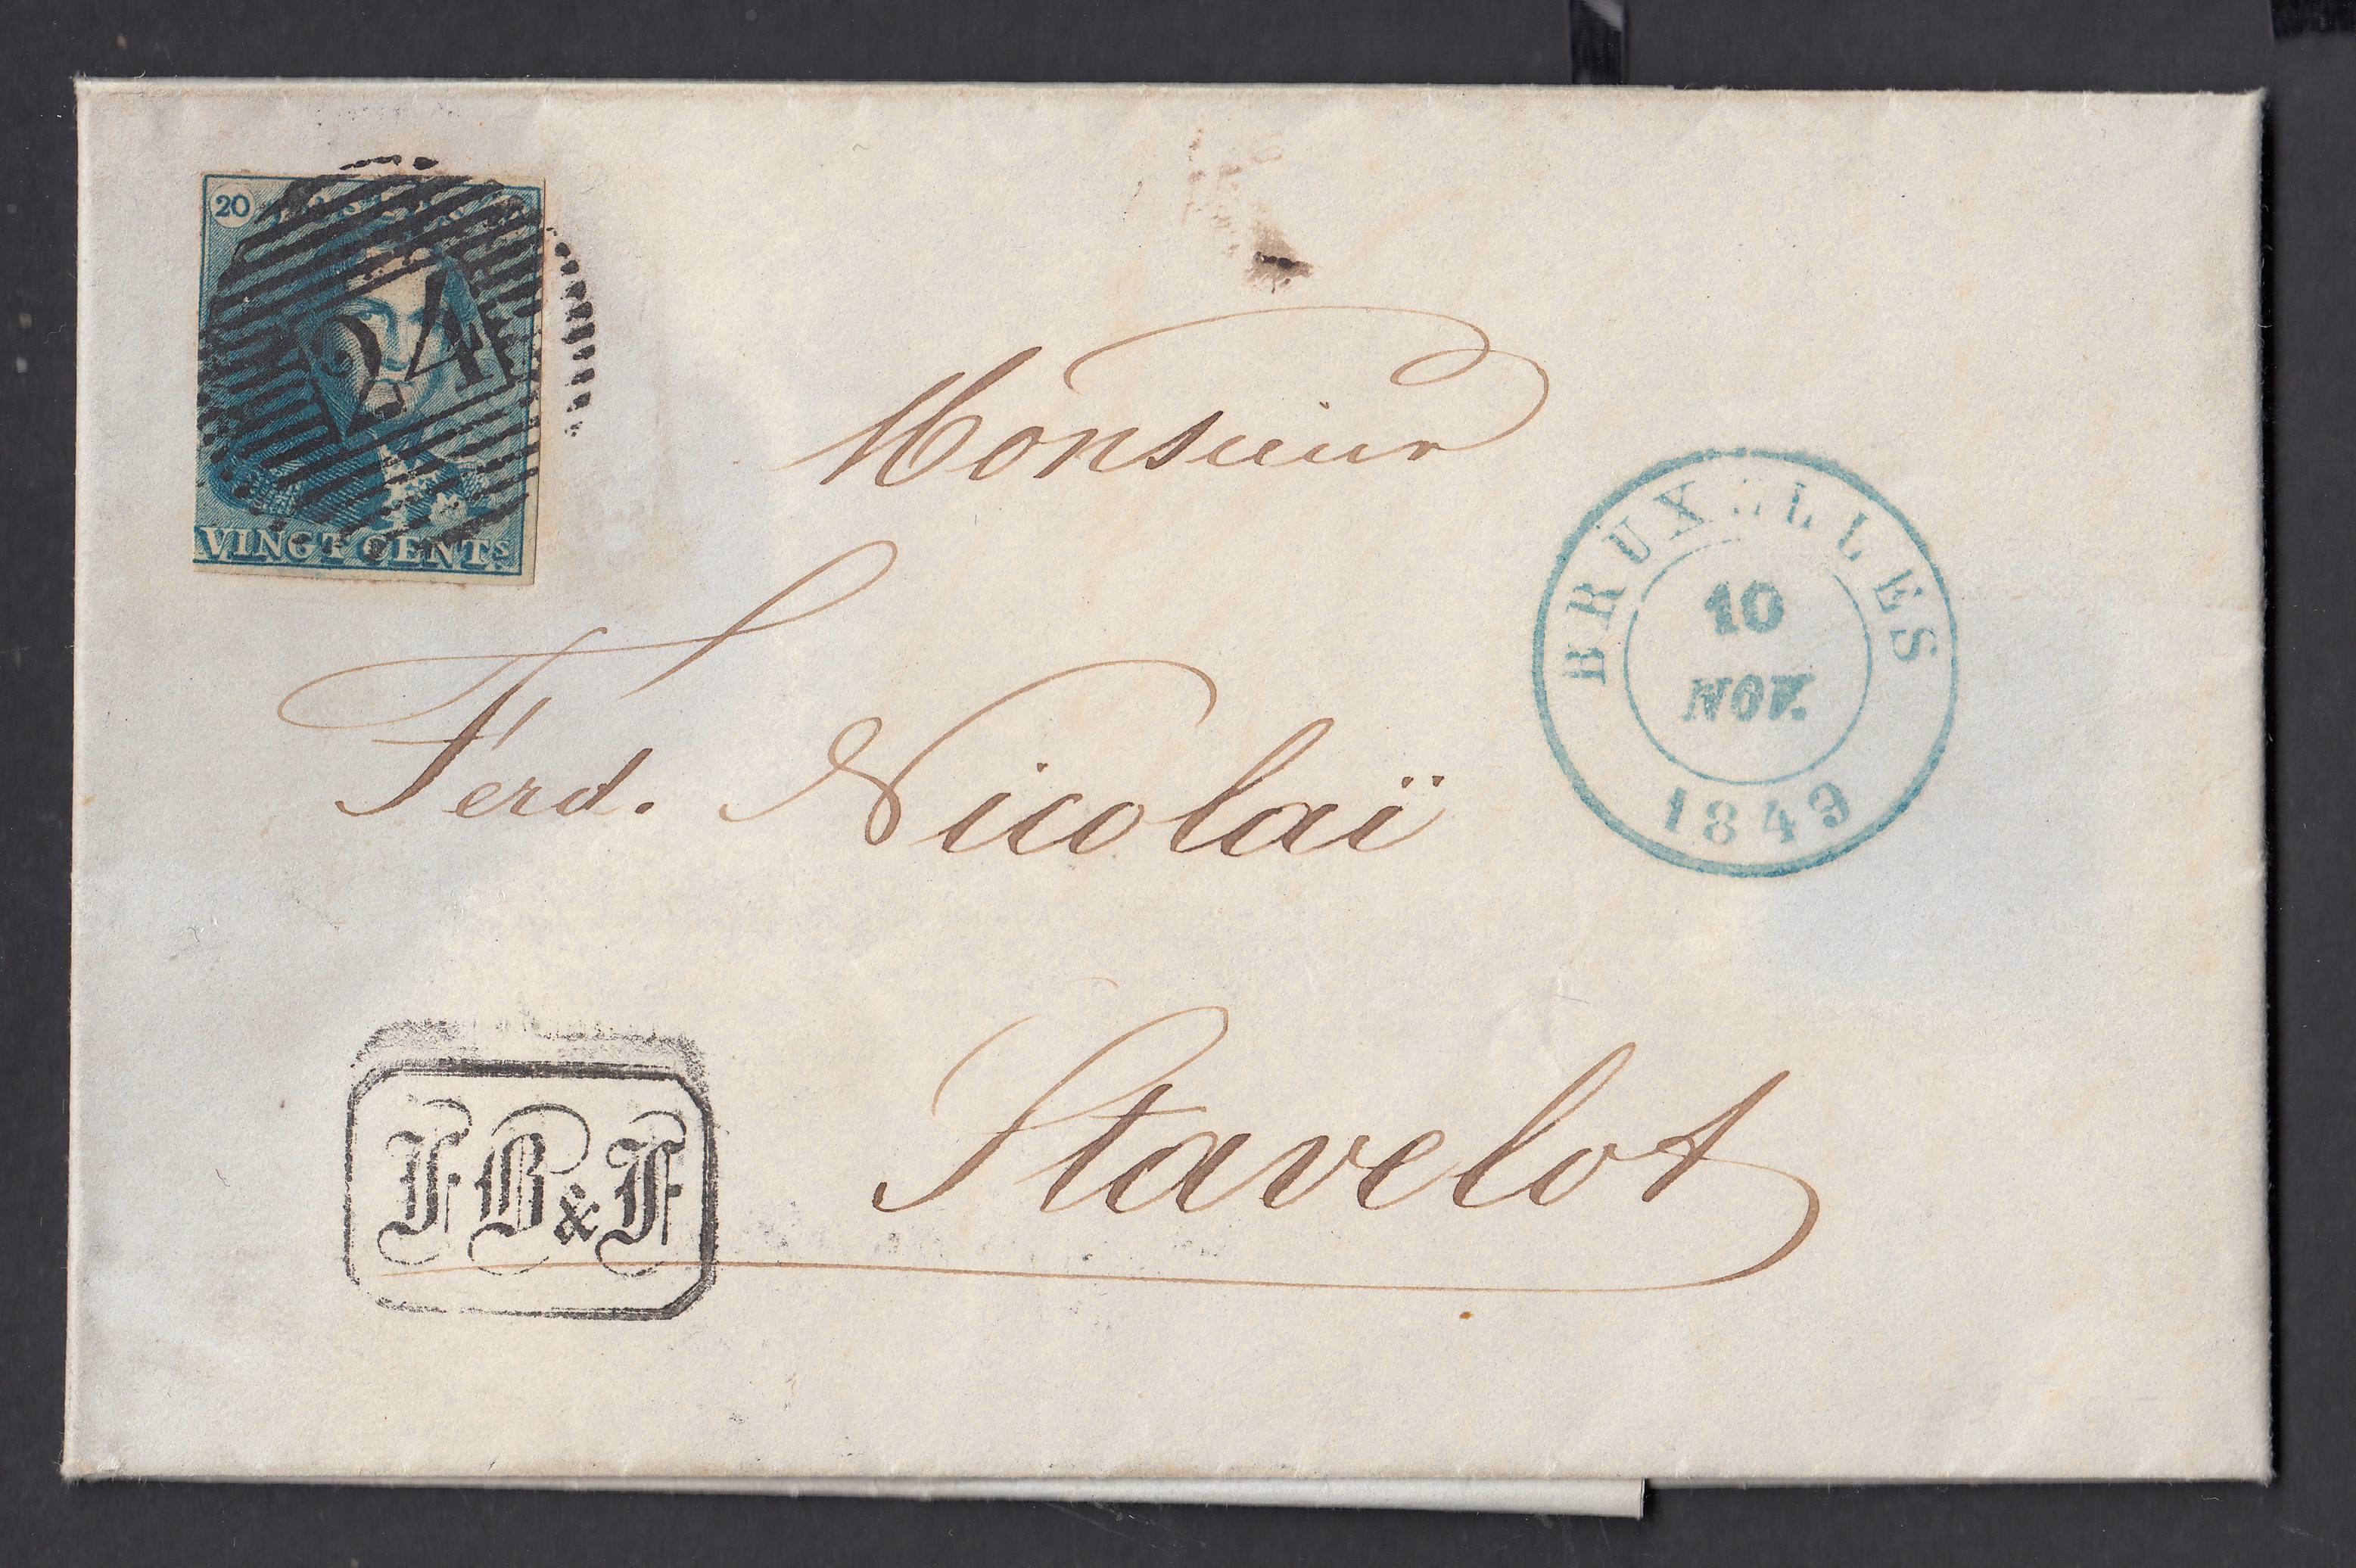 20
24
VINGT CENTS
Monsieur
BRUXELLES
10
NOV.
1849
Ferd. Nicolaï
FB&F
Stavelot